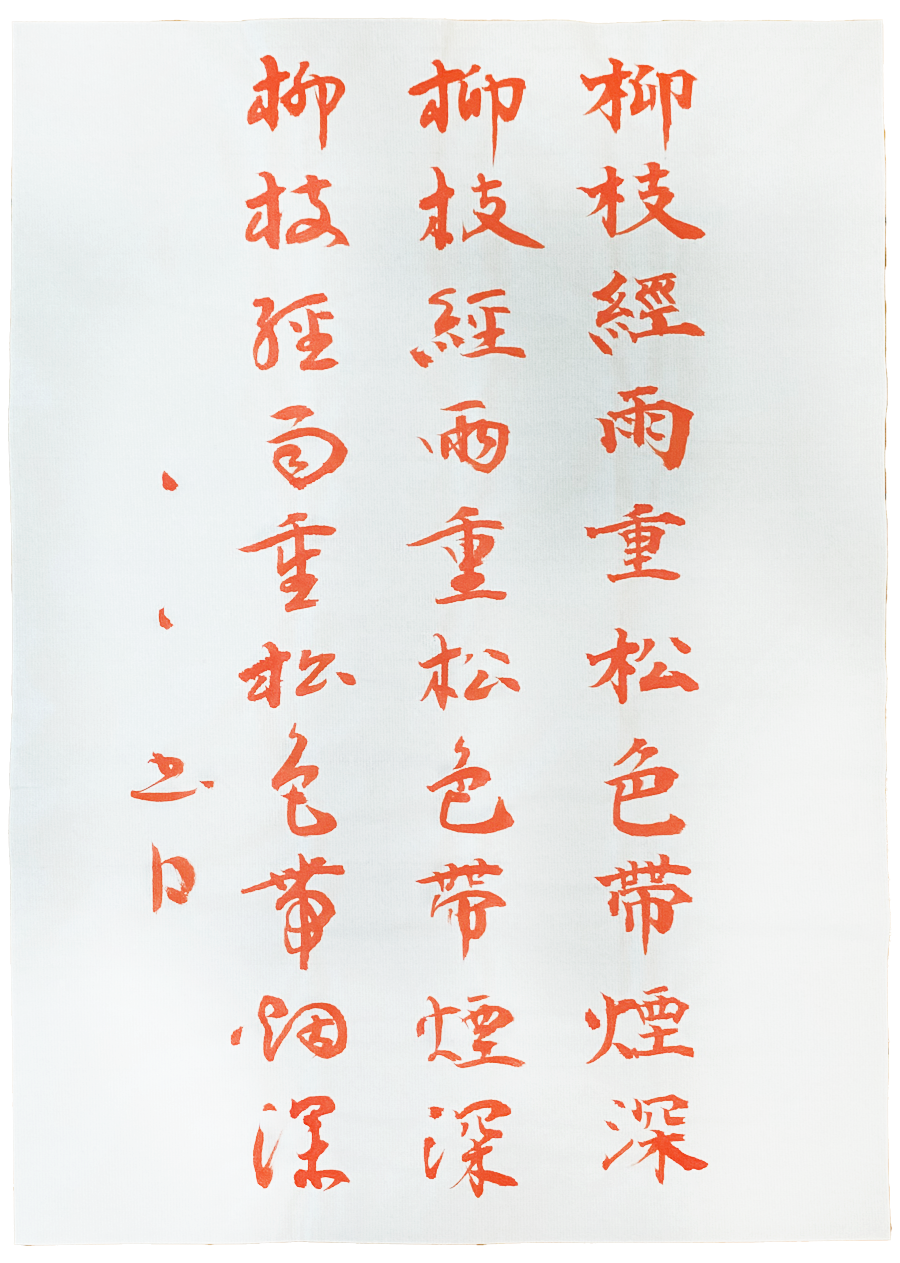 柳枝經雨重松色帶煙深
柳枝經雨重松色帶煙深
柳枝経雨重松色帶烟深